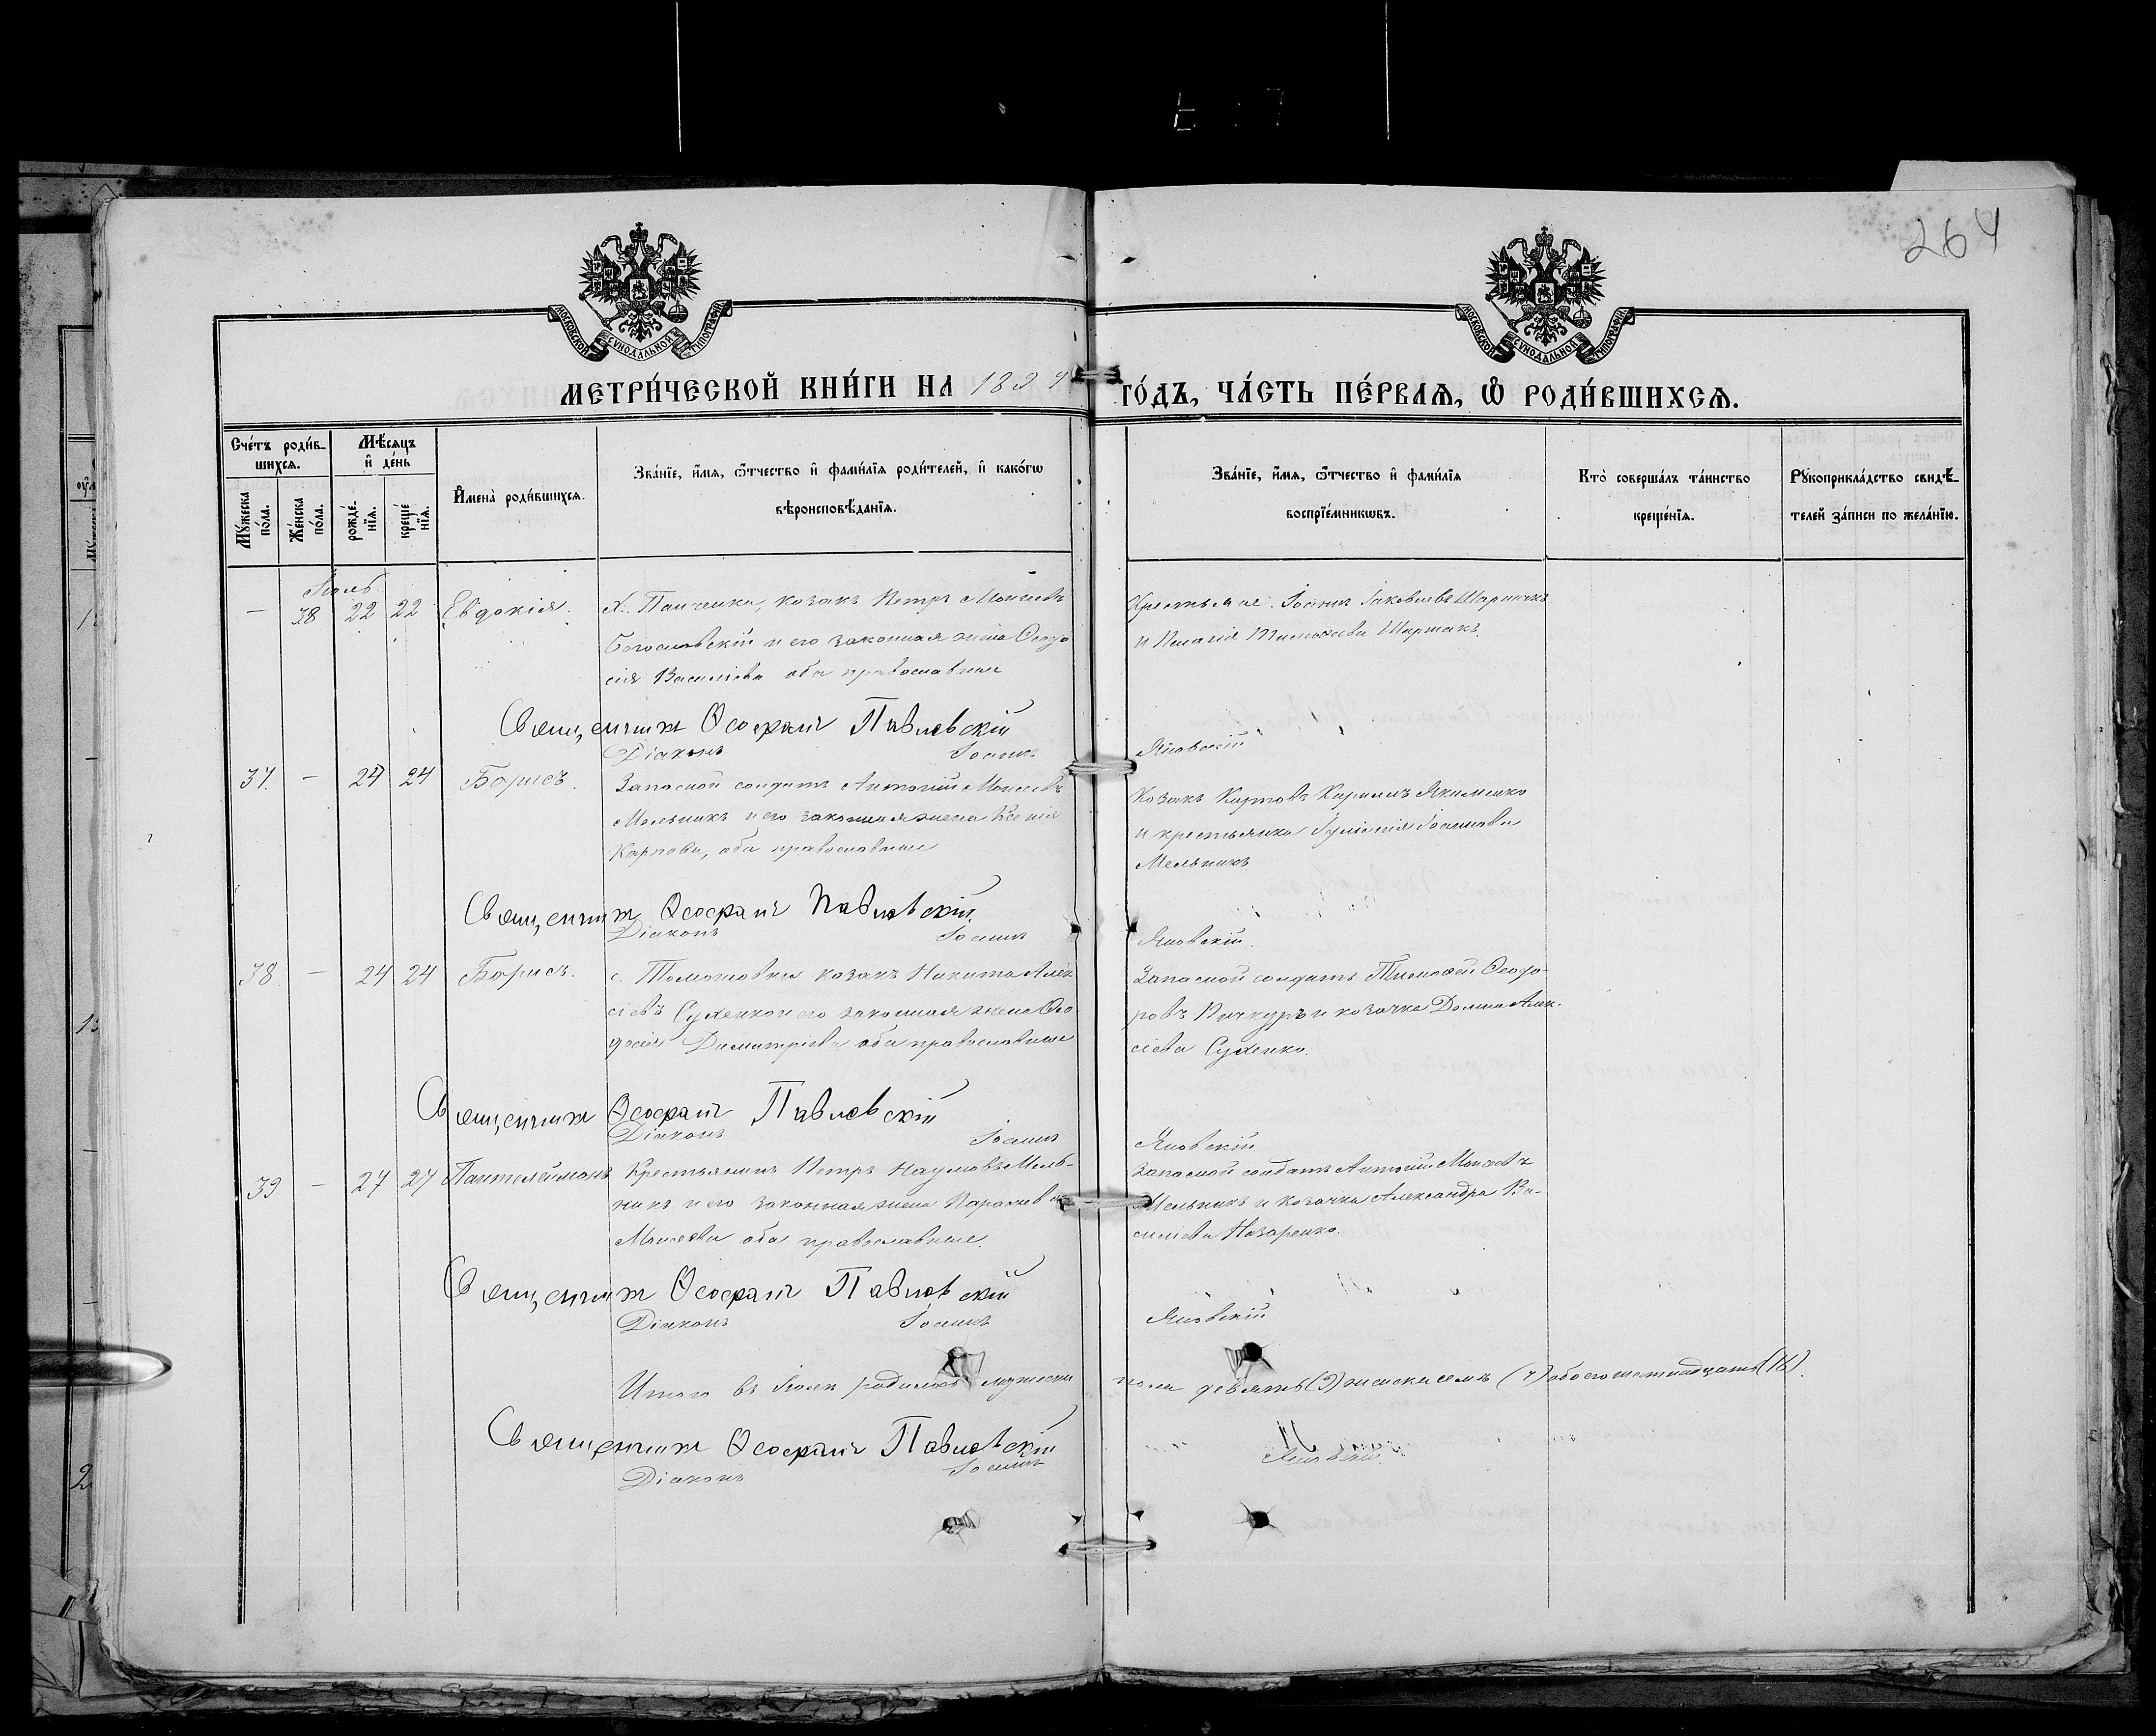 264
МОСКОВСКОЙ СУНОДАЛЬНОЙ ТИПОГРАФІИ
МОСКОВСКОЙ СУНОДАЛЬНОЙ ТИПОГРАФІИ
МЕТРИ́ЧЕСКОЙ КНИ́ГИ НА 189
ГО́ДЪ, ЧА́СТЬ ПЕ́РВАѦ, Ѡ҆ РОДИ́ВШИХСѦ.
Сче́тъ роди́в-
шихсѧ.
Мѣ́сѧцъ
и҆ де́нь
Мꙋ́жеска
по́ла.
Же́нска
по́ла.
рожде́-
нїѧ.
креще́
нїѧ.
И҆мена̀ роди́вшихсѧ.
Зва́нїе, и҆́мѧ, ѻ҆́тчество и҆ фами́лїѧ роди́телей, и҆ како́гѡ
вѣроисповѣ́данїѧ.
Зва́нїе, и҆́мѧ, ѻ҆́тчество и҆ фами́лїѧ
воспрїе́мникѡвъ.
Кто̀ соверша́лъ та́инство
креще́нїѧ.
Рꙋкоприкла́дство свидѣ́-
телей за́писи по жела́нїю.
Іюль
— 38 22 22 Евдокія. х. Панченки, козакъ Петръ Моисеевъ
Богославскій и его законная жена Ѳеодо
сія Василіева оба православные
Крестьяне Іоаннъ Іаковлевъ
и Пелагія
Священникъ Ѳеофанъ Павловскій
Діаконъ Іоаннъ
Яновскій
37. — 24 24 Борисъ. Запасной солдатъ Антоній Моисеевъ
Мельникъ и его законная жена Ксенія
Карпова, оба православные
Козакъ Якименко
и крестьянка Іуліанія Іоаннова
Мельникъ
Священникъ Ѳеофанъ Павловскій
Діаконъ Іоаннъ
Яновскій.
38 — 24 24 Борисъ. с. козакъ Никита Алек
сіевъ Сухенко и его законная жена Ѳео
досія Димитріева оба православные
Запасной солдатъ Тимоѳей Ѳеодо-
ровъ Пичкуръ и козачка Домна Алек-
сіева Сухенко.
Священникъ Ѳеофанъ Павловскій
Діаконъ Іоаннъ
Яновскій
39 — 27 27 Пантелеймонъ Крестьянинъ Петръ Наумовъ Мель-
никъ и его законная жена Параскева
Моисеева оба православные.
Запасной солдатъ Антоній Моисеевъ
Мельникъ и козачка Александра Ва-
силіева Назаренко.
Священникъ Ѳеофанъ Павловскій
Діаконъ Іоаннъ
Яновскій
Итого въ Іюлѣ родилось мужеска
пола девять (9) женска семь (7) обоего шестнадцать (16).
Священникъ Ѳеофанъ Павловскій
Діаконъ Іоаннъ
Яновскій.